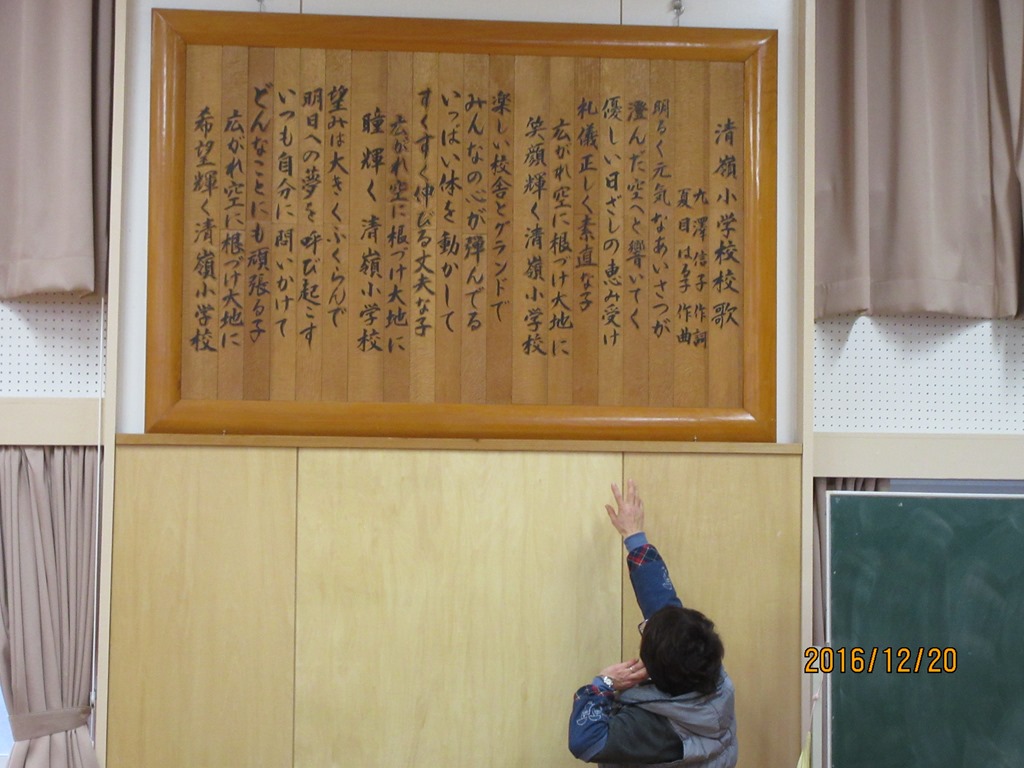 清嶺小学校校歌
九澤信子 作詞
夏目はる子 作曲
明るく元気なあいさつが
澄んだ空へと響いてく
優しい日ざしの恵み受け
礼儀正しく素直な子
広がれ空に根づけ大地に
笑顔輝く清嶺小学校
楽しい校舎とグランドで
みんなの心が弾んでる
いっぱい体を動かして
すくすく伸びる丈夫な子
広がれ空に根づけ大地に
瞳輝く清嶺小学校
望みは大きくふくらんで
明日への夢を呼び起こす
いつも自分に問いかけて
どんなことにも頑張る子
広がれ空に根づけ大地に
希望輝く清嶺小学校
2016/12/20